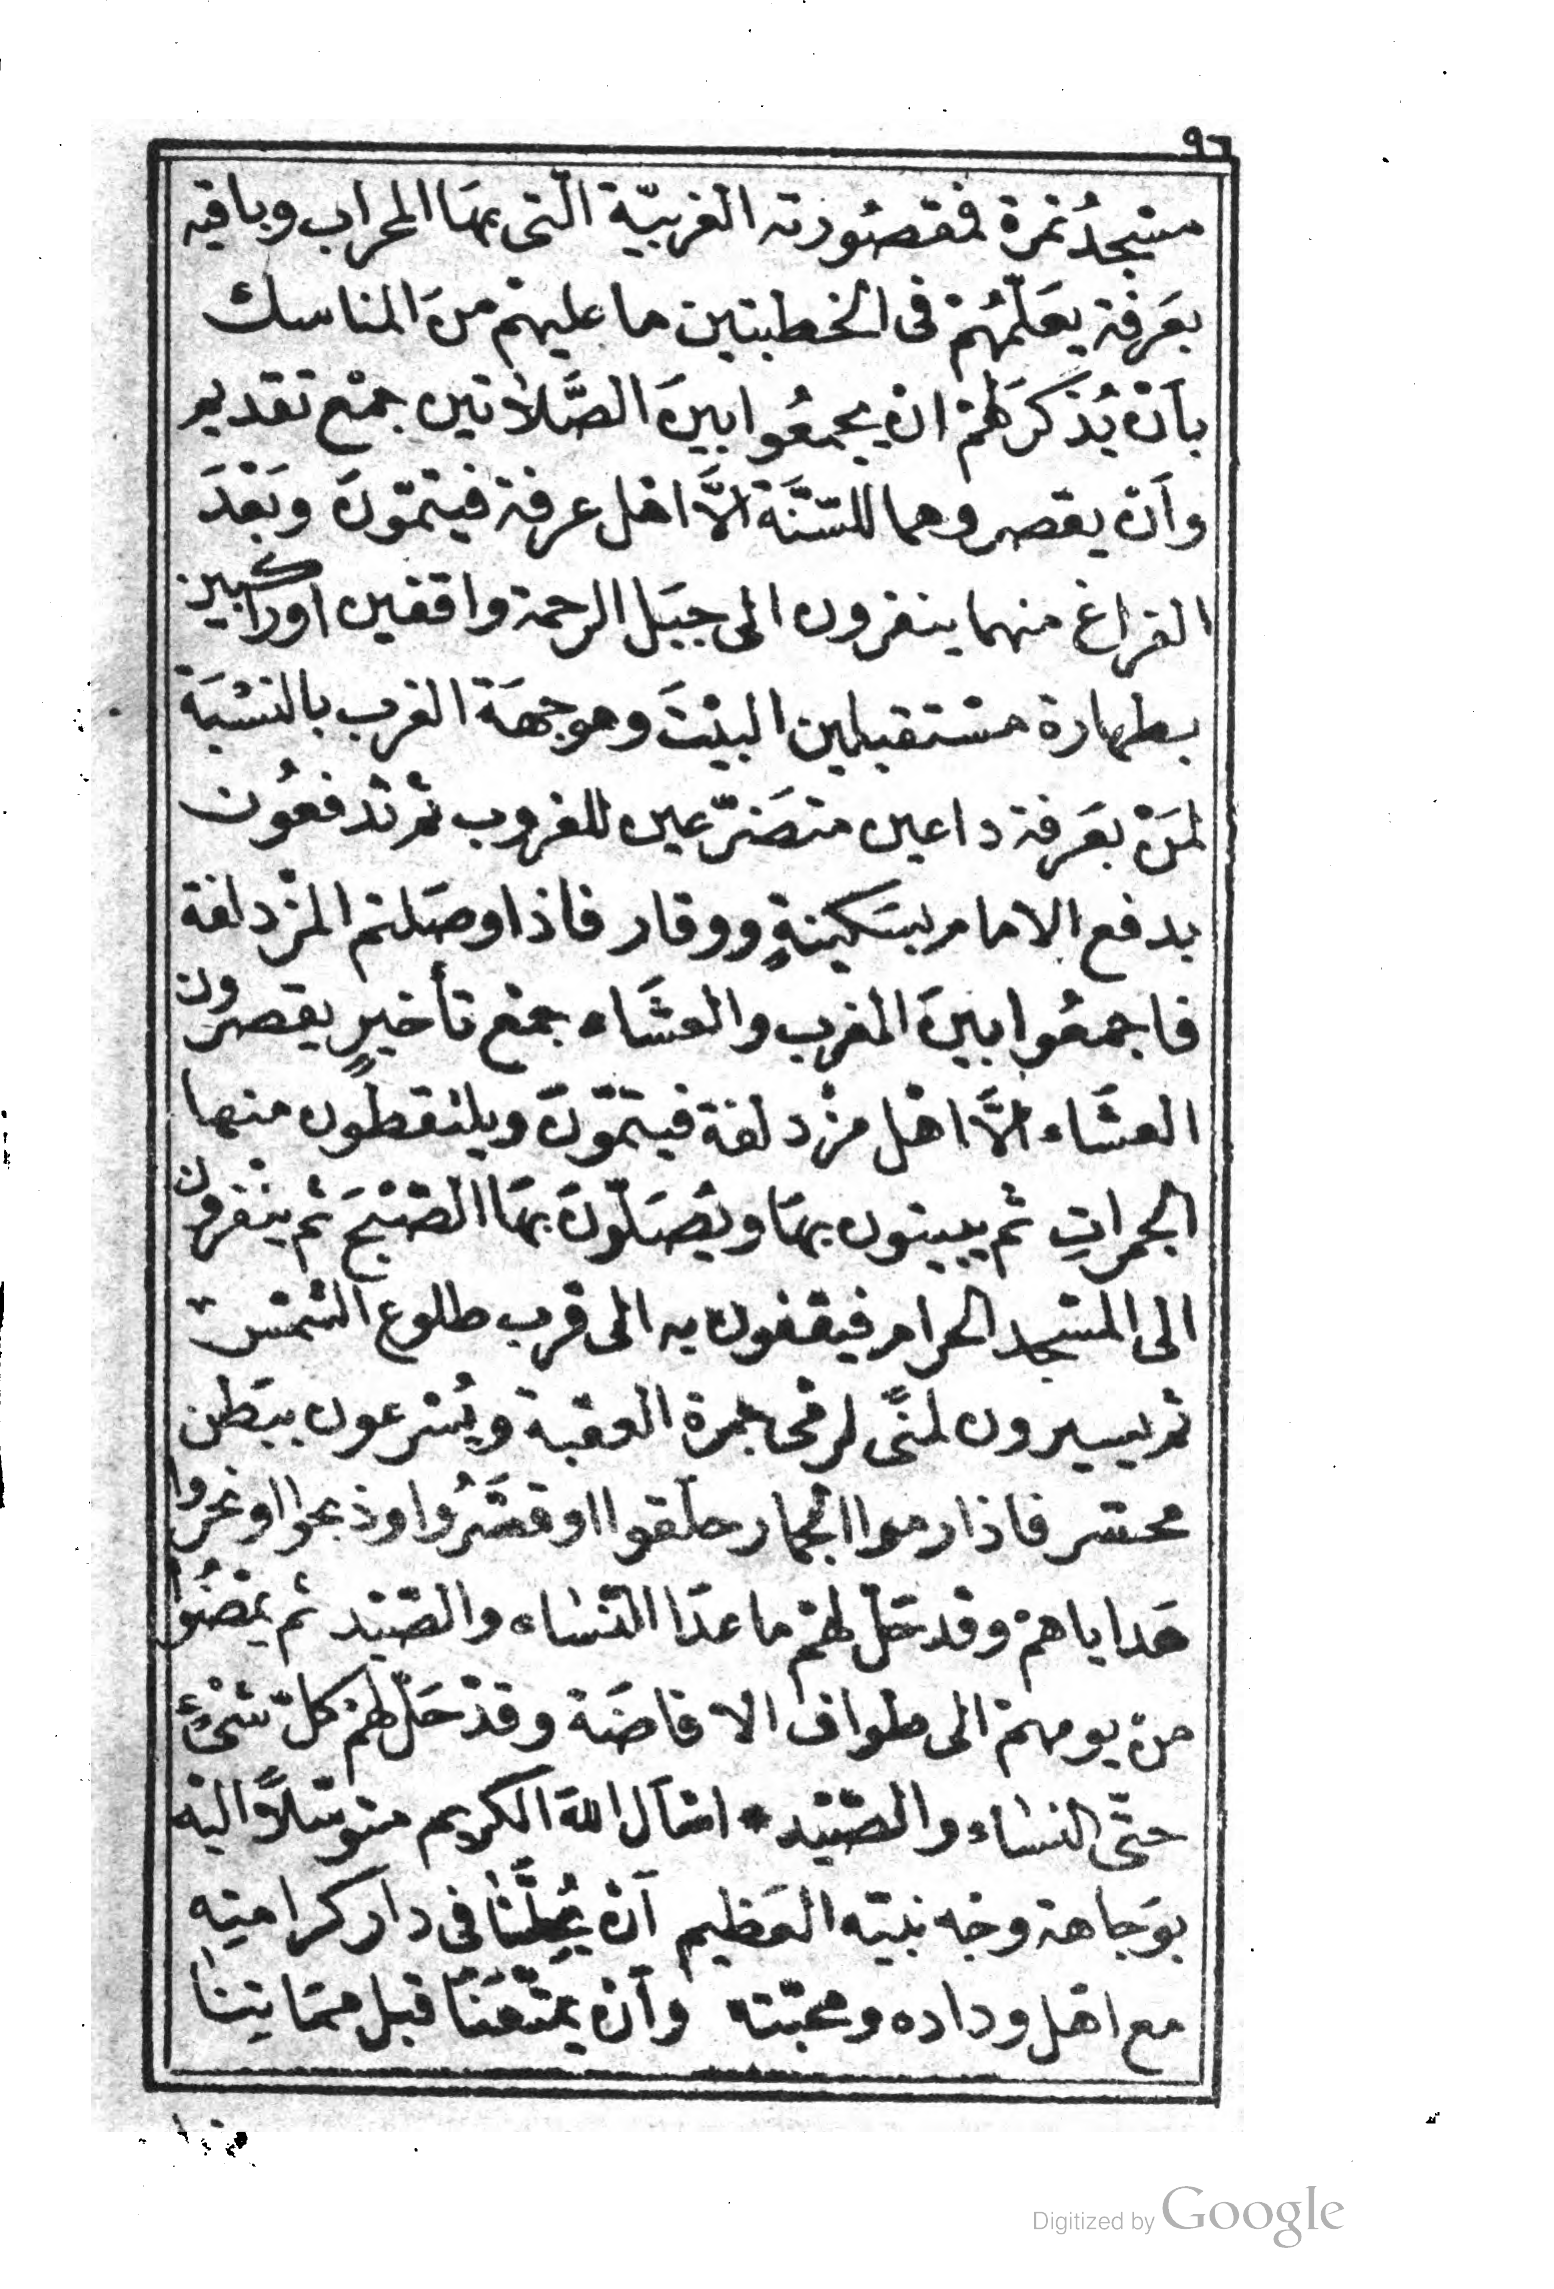 ٩٦
مسْجدُ نمرة فمقصُورته الغربيّة الّتى بهَا المحراب وباقيه
بعَرفة يعَلّمُهُمْ فى الخطبتين ما عليهمْ منَ المناسك
بأنْ يُذكرَ لهمْ انْ يجمعُوا بينَ الصَّلاتين جمْع تقديم
وأنْ يقصروهما للسّنَّة الاَّ اهْل عرفة فيتمّونَ وبَعْدَ
الفراغ منهما ينفرون الى جبَل الرحمة واقفين اوراكبين
بطهارة مسْتقبلين البيْتَ وهو جهَة الغرب بالنسْبَة
لمَنْ بعَرفة داعين متضَرّعين للغروب ثم تدفعُون
بدفع الامام بسَكينةٍ ووقار فاذا وصَلتم المزْدلفة
فاجمعُوا بينَ المغرب والعشَاء جمْع تأخيرٍ يقصرُون
العشَاء الاَّ اهْل مزْدلفة فيتمّونَ ويلتقطون منها
الجمراتِ ثم يبيتون بهَا ويُصَلّونَ بهَا الصّبْحَ ثم ينفرون
الى المسْجد الحرام فيقفون به الى قرب طلوع الشمْس
ثم يسيرون لمنًى لرمْى جمرة العقبة ويُسْرعون ببَطن
محسّر فاذا رموا الجمار حلّقوا اوقصَّرُوا وذبحوا اونحروا
هَداياهمْ وقد حَلّ لهمْ ما عدَا النّسٰاء والصّيْد ثم يمْضُوا
منْ يومهمْ الى طواف الافاضَة وقدْ حَلّ لهمْ كلّ شىْءٍ
حتّى النسٰاء والصّيْد * اسْأل اللهَ الكريم متوسّلاً اليْه
بوَجاهة وجْه نبيّه العَظيم أنْ يُحِلَّنٰا فى دار كرامته
مع اهْل وداده ومحبّته وأنْ يمتّعَنَا قبل ممَاتنٰا
Digitized by Google